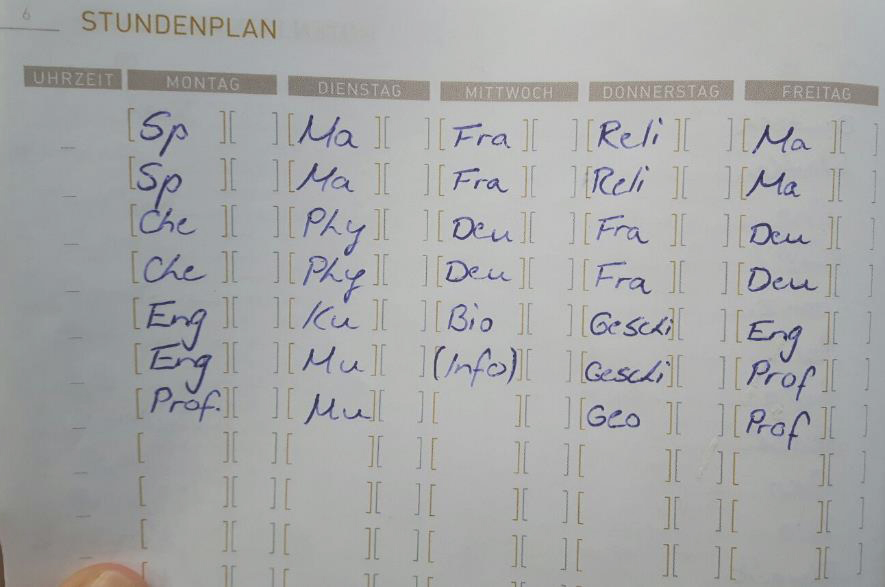 6
STUNDENPLAN
UHRZEIT MONTAG DIENSTAG MITTWOCH DONNERSTAG FREITAG
Sp Ma Fra Reli Ma
Sp Ma Fra Reli Ma
Che Phy Deu Fra Deu
Che Phy Deu Fra Deu
Eng Ku Bio Geschi Eng
Eng Mu (Info) Geschi Prof
Prof. Mu Geo Prof